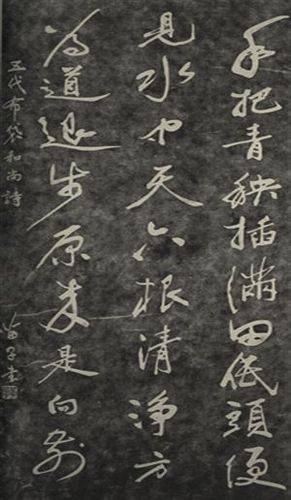 手把青秧插满田低頭便
見水中天六根清淨方
為道退步原来是向前
五代布袋和尚詩